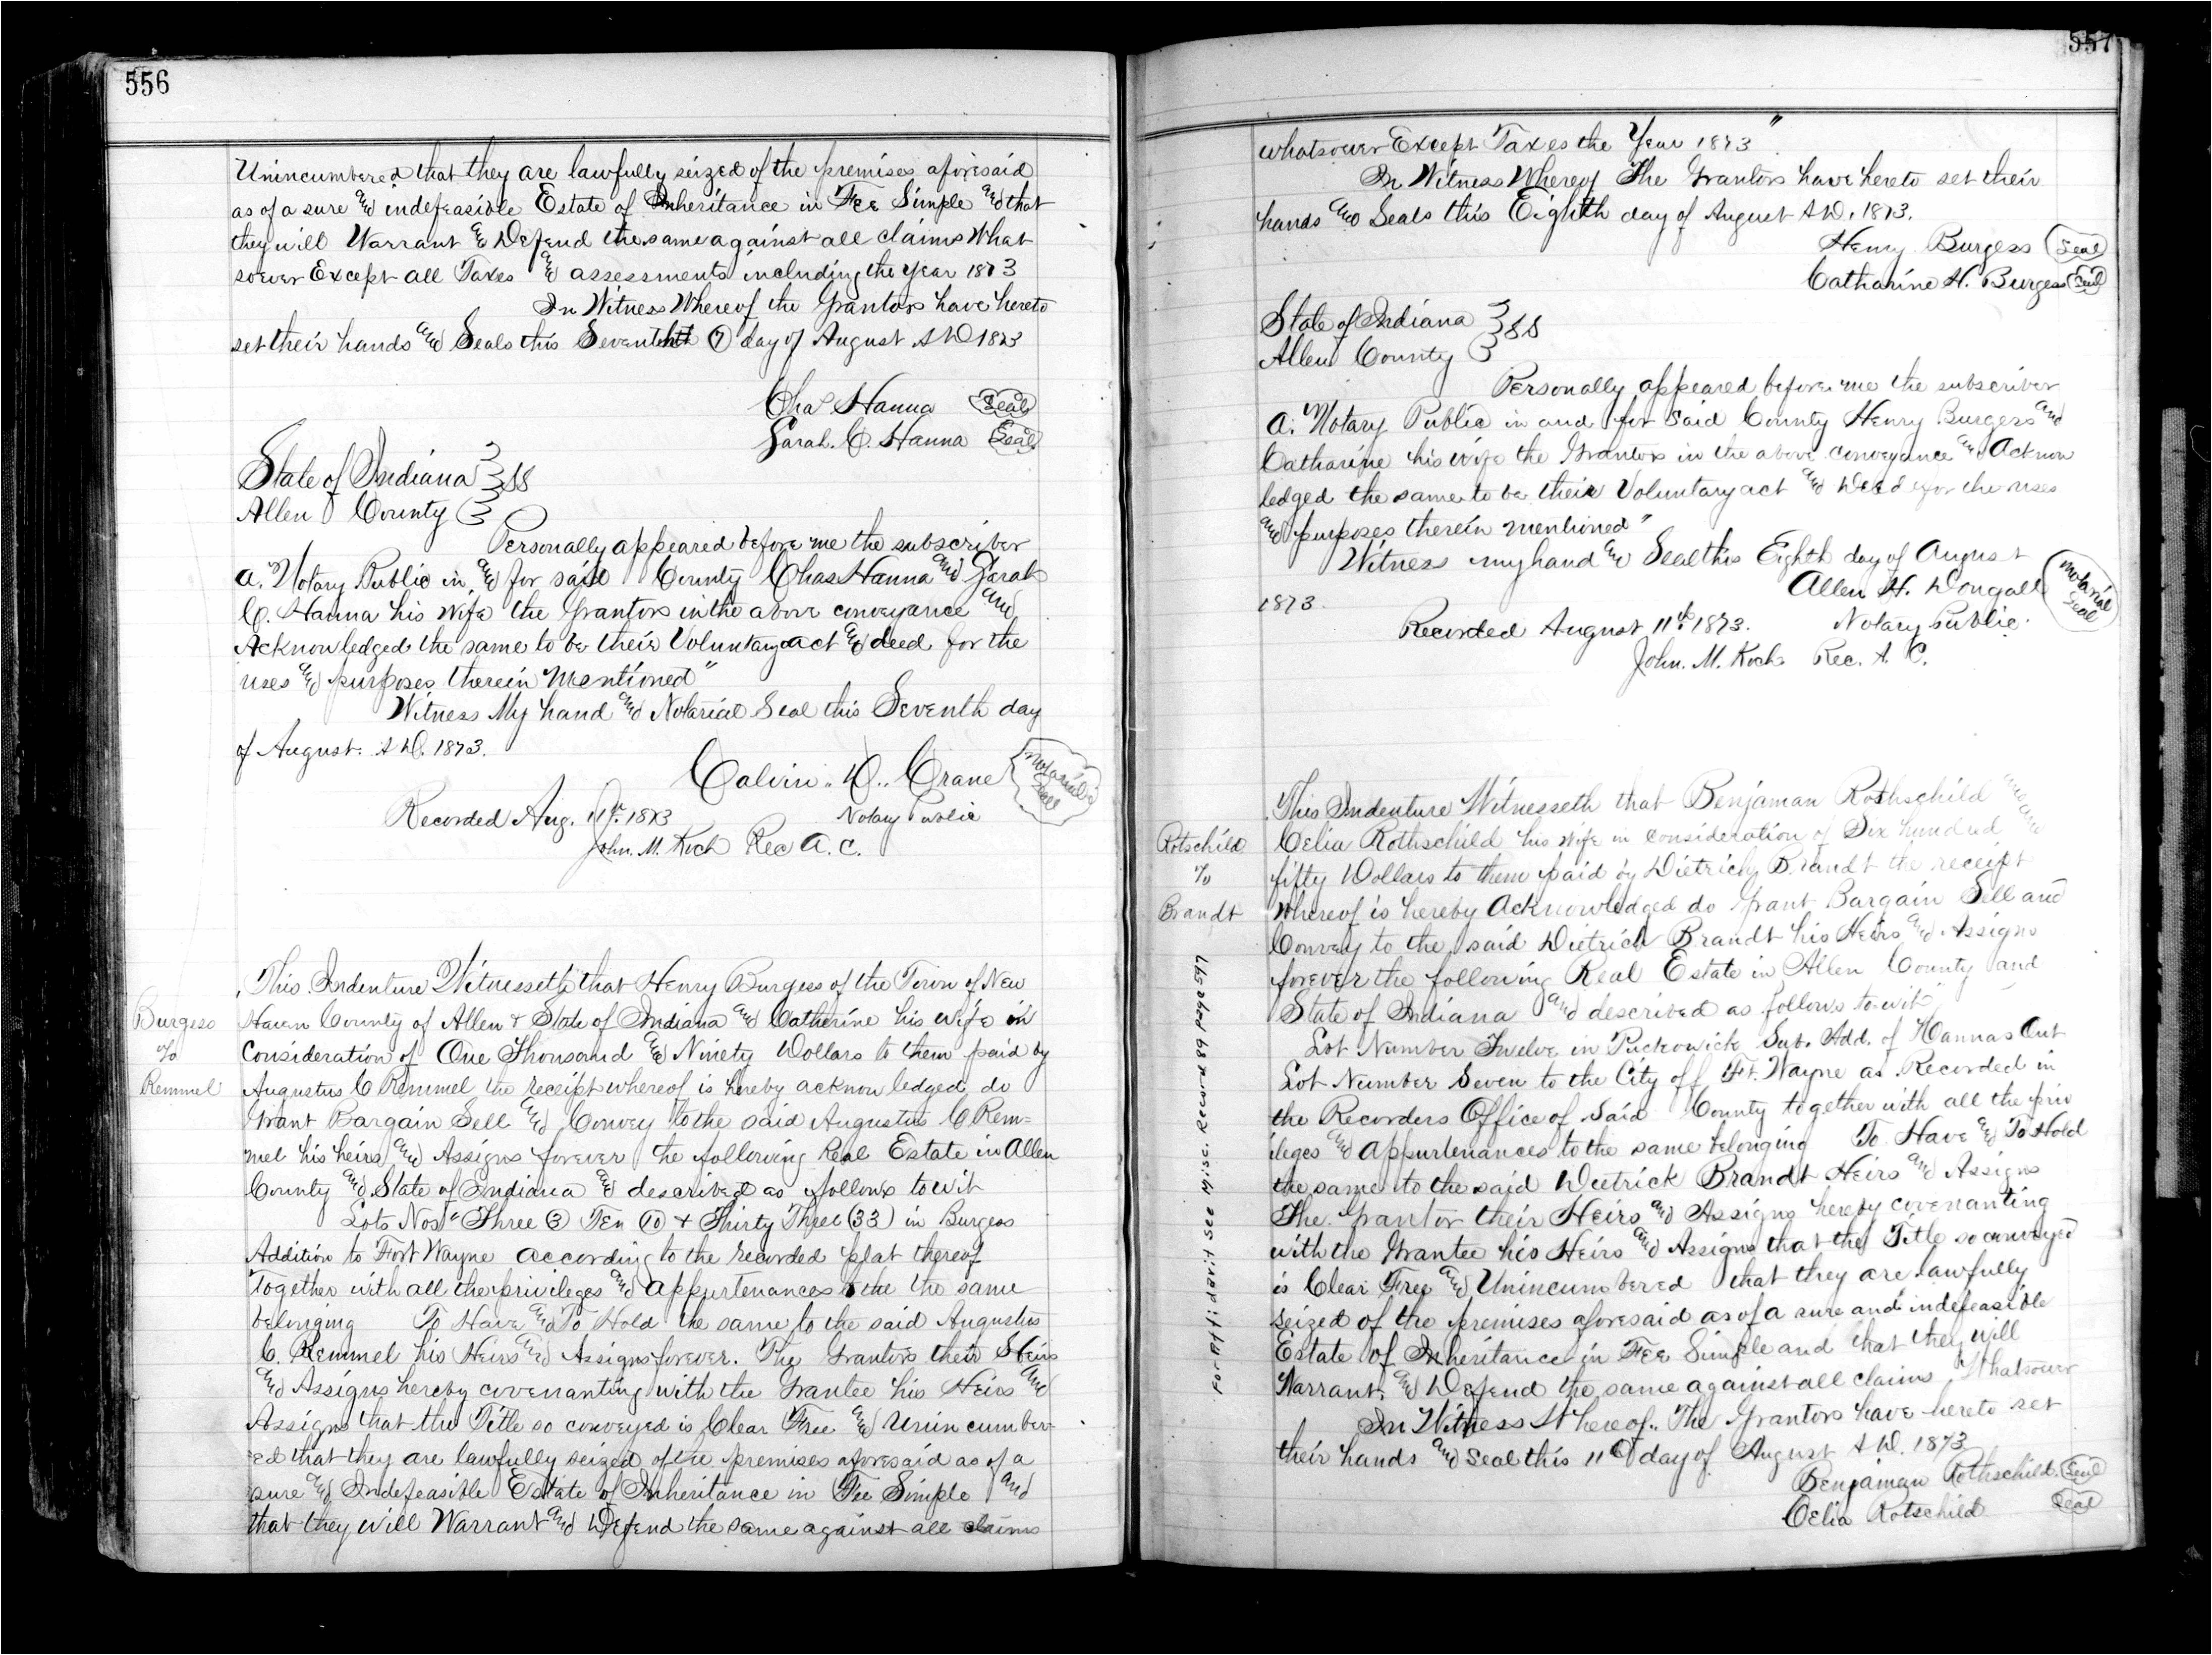 556
Unincumbered that they are lawfully seized of the premises aforesaid
as of a sure and indefeasible Estate of Inheritance in Fee Simple and that
they will Warrant & Defend the same against all claims What
soever Except all Taxes & assessments including the year 1873
In Witness Whereof the Grantors have hereto
set their hands and Seals this Seventh (7) day of August A D 1873
Chas Hanna Seal
Sarah. C. Hanna Seal
State of Indiana } SS
Allen County }
Personally appeared before me the subscriber
a. Notary Public in and for said County Chas Hanna and Sarah
C. Hanna his wife the Grantors in the above conveyance and
Acknowledged the same to be their Voluntary act and deed for the
uses and purposes therein Mentioned"
Witness My hand and Notarial Seal this Seventh day
of August. A D. 1873.
Calvin .. D.. Crane Notarial Seal
Recorded Aug. 11th 1873 Notary Public
John. M. Koch Rec A. C.
Burgess
to
Remmel
This Indenture Witnesseth that Henry Burgess of the Town of New
Haven County of Allen & State of Indiana and Catherine his wife in
Consideration of One Thousand and Ninety Dollars to them paid by
Augustus C Remmel the receipt whereof is hereby acknowledged, do
Grant Bargain Sell and Convey to the said Augustus C Rem-
mel his heirs and Assigns forever the following Real Estate in Allen
County and State of Indiana and described as follows to wit
Lots Nos" Three (3) Ten (10) & Thirty Three (33) in Burgess
Addition to Fort Wayne according to the recorded plat thereof
Together with all the privileges and appurtenances to the same
belonging To Have and To Hold the same to the said Augustus
C. Remmel his Heirs and Assigns forever. The Grantors their Heirs
and Assigns hereby covenanting with the Grantee his Heirs and
Assigns that the Title so conveyed is Clear Free and Unincumber-
ed that they are lawfully seized of the premises aforesaid as of a
sure and Indefeasible Estate of Inheritance in Fee Simple and
that they will Warrant and Defend the same against all claims
557
whatsoever Except Taxes the Year 1873"
In Witness Whereof The Grantors have hereto set their
hands and Seals this Eighth day of August A D. 1873.
Henry Burgess Seal
Catharine H. Burgess Seal
State of Indiana } SS
Allen County }
Personally appeared before me the subscriber
a. Notary Public in and for said County Henry Burgess and
Catharine his wife the Grantors in the above conveyance and Acknow
ledged the same to be their Voluntary act and Deed for the uses
and purposes therein mentioned"
Witness my hand and Seal this Eighth day of August
1873. Allen H. Dougall Notarial Seal
Recorded August 11th 1873. Notary Public.
John. M. Koch Rec. A. C.
Rotschild
to
Brandt
For Affidavit see Misc. Record 89 page 597
This Indenture Witnesseth that Benjaman Rothschild and
Celia Rothschild his wife in consideration of Six hundred
fifty Dollars to them paid by Dietrich Brandt the receipt
whereof is hereby Acknowledged do Grant Bargain Sell and
Convey to the said Dietrich Brandt his Heirs and Assigns
forever the following Real Estate in Allen County and
State of Indiana and described as follows to wit
Lot Number Twelve in Puckowick Sub. Add. of Hannas Out
Lot Number Seven to the City off Ft. Wayne as Recorded in
the Recorders Office of Said County together with all the priv
ileges and appurtenances to the same belonging To Have and To Hold
the same to the said Dietrick Brandt Heirs and Assigns
The Grantor their Heirs and Assigns hereby covenanting
with the Grantee his Heirs and Assigns that the Title so conveyed
is Clear Free and Unincumbered that they are lawfully
seized of the premises aforesaid as of a sure and indefeasible
Estate of Inheritance in Fee Simple and that they will
Warrant and Defend the same against all claims Whatsoever
In Witness Whereof.. The Grantors have hereto set
their hands and Seal this 11th day of August A D. 1873.
Benjaman Rothschild. Seal
Celia Rotschild Seal